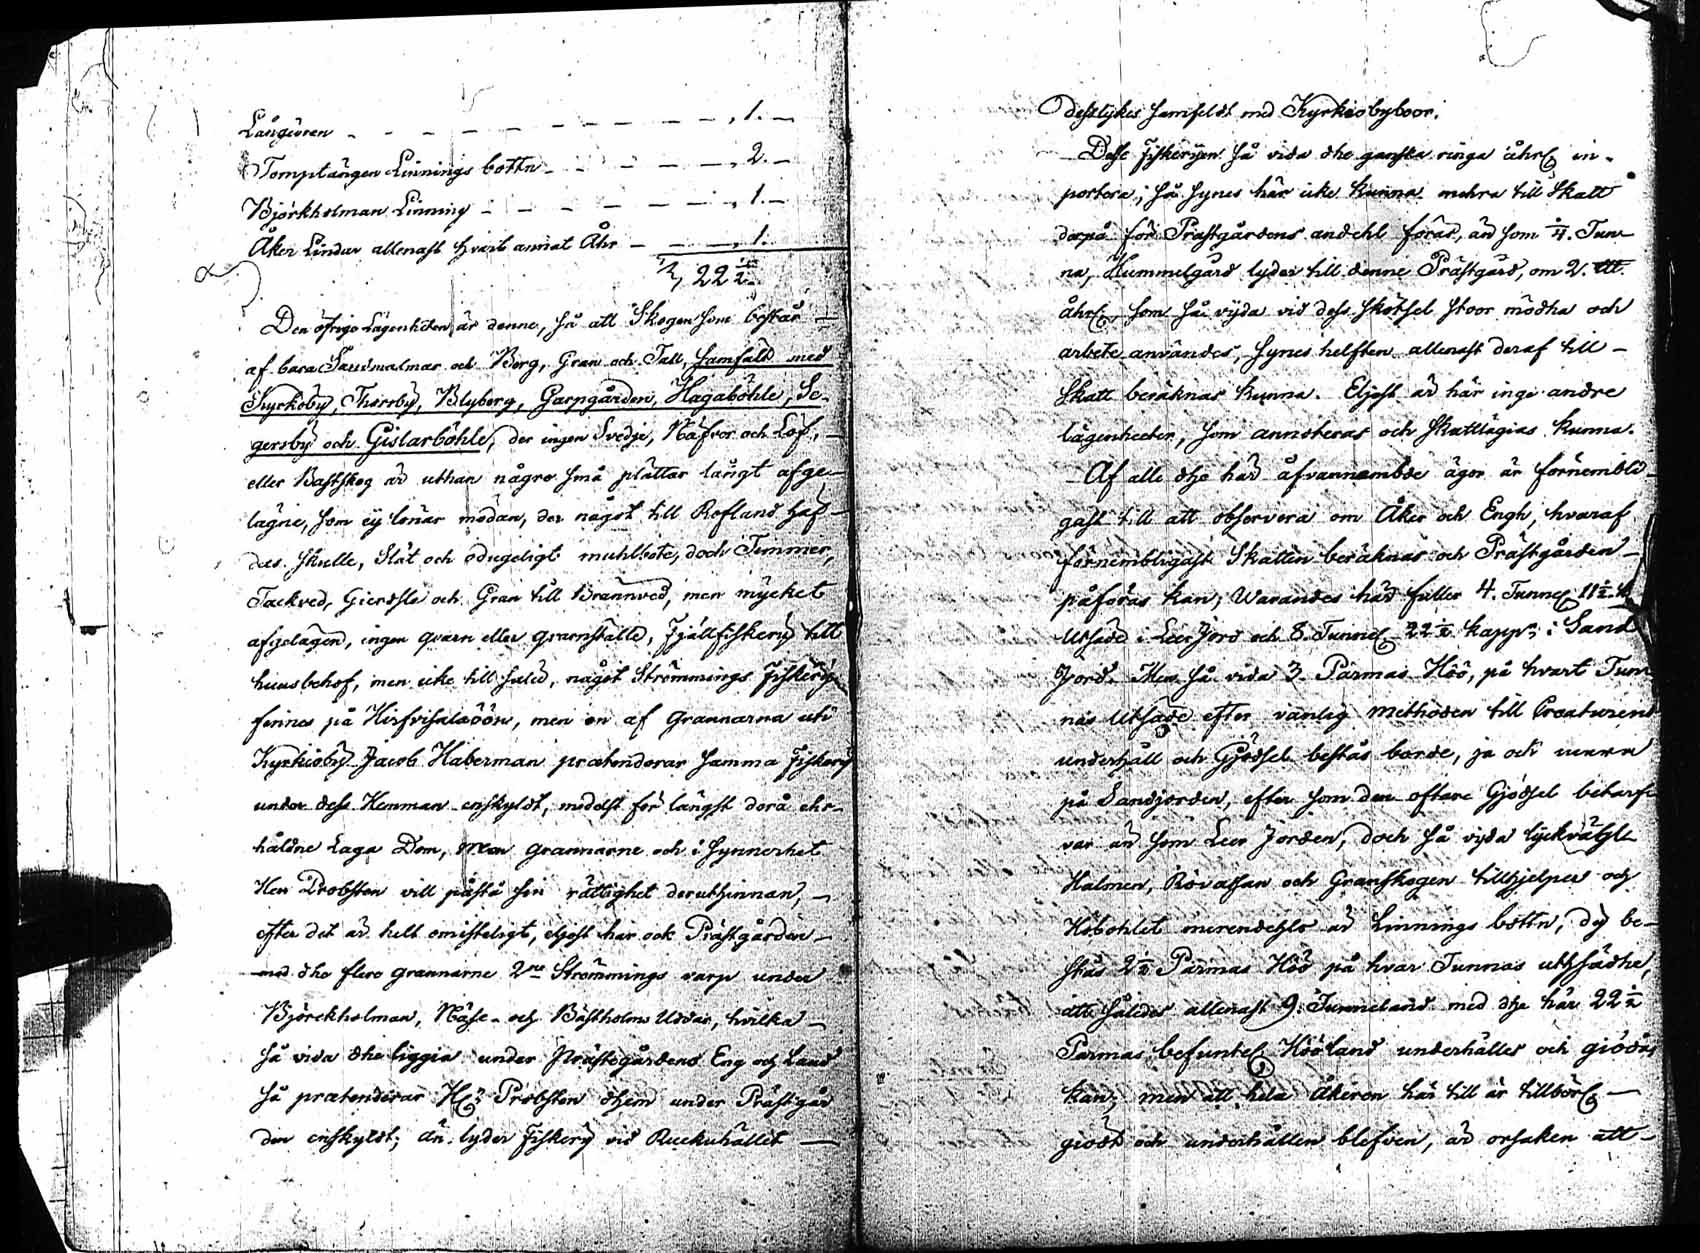 Långören - - - - - - - - - , 1. -
Tomptängen Linnings bottn - - - - - , 2. -
Björkholman Linning - - - - - - , 1. -
Åker Lindar allenast hvart annat Åhr - - - , 1.
22 ½.
Den öfrige Lägenheten är denne, så att Skogen som består -
af bara Sandmalmar och Berg, Gran och Tall, samfäld med
Kyrkoby, Thorsby, Blyberg, Garpgården, Hagaböhle, Se-
gersby och Gislarböhle, der ingen Svedje, Näfver och Löf, -
eller Bastskog är uthan någre små plättar långt afge-
lägne, som ey lönar mödan, der något till Rofland häf-
das skulle, Slät och odugeligt muhlbete, doch Timmer,
Tackved, Gierdsle och Gran till Brännved, men mycket
afgelägen, ingen qvarn eller qvarnställe, Fjällfiskery till
huusbehof, men icke till salu, något Strömmings Fiskery
finnes på Hirfvisalaöön, men en af Grannarna uti
Kyrkioby Jacob Haberman prætenderar samma Fiskery
under dess Hemman enskyldt, medelst för längst derå ehr-
håldne Laga Dom, men grannarne och i synnerhet
Herr Probsten vill påstå sin rättighet deruthinnan, -
efter det är helt omisteligt, eljest har ock Prästgården -
med dhe flere grannarne 2ne Strömmings varp under
Björckholman, Näse- och Bästholms Uddar, hvilka -
så vida dhe liggia under Prästegårdens Eng och Land
så prætenderar Hr Probsten dhem under Prästgår
den enskyldt; än lyder Fiskery vid Ruckuhället -
desslykes samfeldt med Kyrkiobyboer.
Desse Fiskeryen så vida dhe ganska ringa åhrl. in-
portera; så synes här icke kunna mehra till Skatt
derpå för Prästgårdens andehl föras, än som ¼. Tun-
na, Hummelgård lyder till denne Prästgård, om 2.
åhrl. som så vyda vid dess skötsel stoor mödha och
arbete användes, synes helften allenast deraf till -
Skatt beräknas kunna. Eljest är här inge andre
lägenheeter, som annoteras och skattlägias kunna.
- Af alle dhe här åfvannembde ägor är förnembli-
gast till att observera om Åker och Engh, hvaraf
förnembligast Skatten beräknas och Prästgården -
påföras kan; Warandes här fuller 4. Tunnel. 11½.
Utsäde i Leer Jord och 8. Tunnel. 22½ kapp. i Sand
Jord. Men så vida 3 Parmas Höö, på hvart Tun
nas Utsäde efter vanlig methoden till Creaturens
underhåll och Gjödsel bestås borde, ja och meera
på Sandjorden, efter som den oftare Gjödsel betarf-
var än som Leer Jorden, doch så vyda lyckväl
Halmen, Rövassan och Granskogen tillhjelper och
Höbohlet merendehls är Linnings bottn, dy be-
stås 2½ Parmas Höö på hvar Tunnas utsädhe,
att således allenast 9. Tunneland med dhe här 22½
Parmas befuntel. Hööland underhålles och giödas
kan; men att hela Åkeren här till är tillbörl. -
giödt och underhållen blefven, är orsaken att -